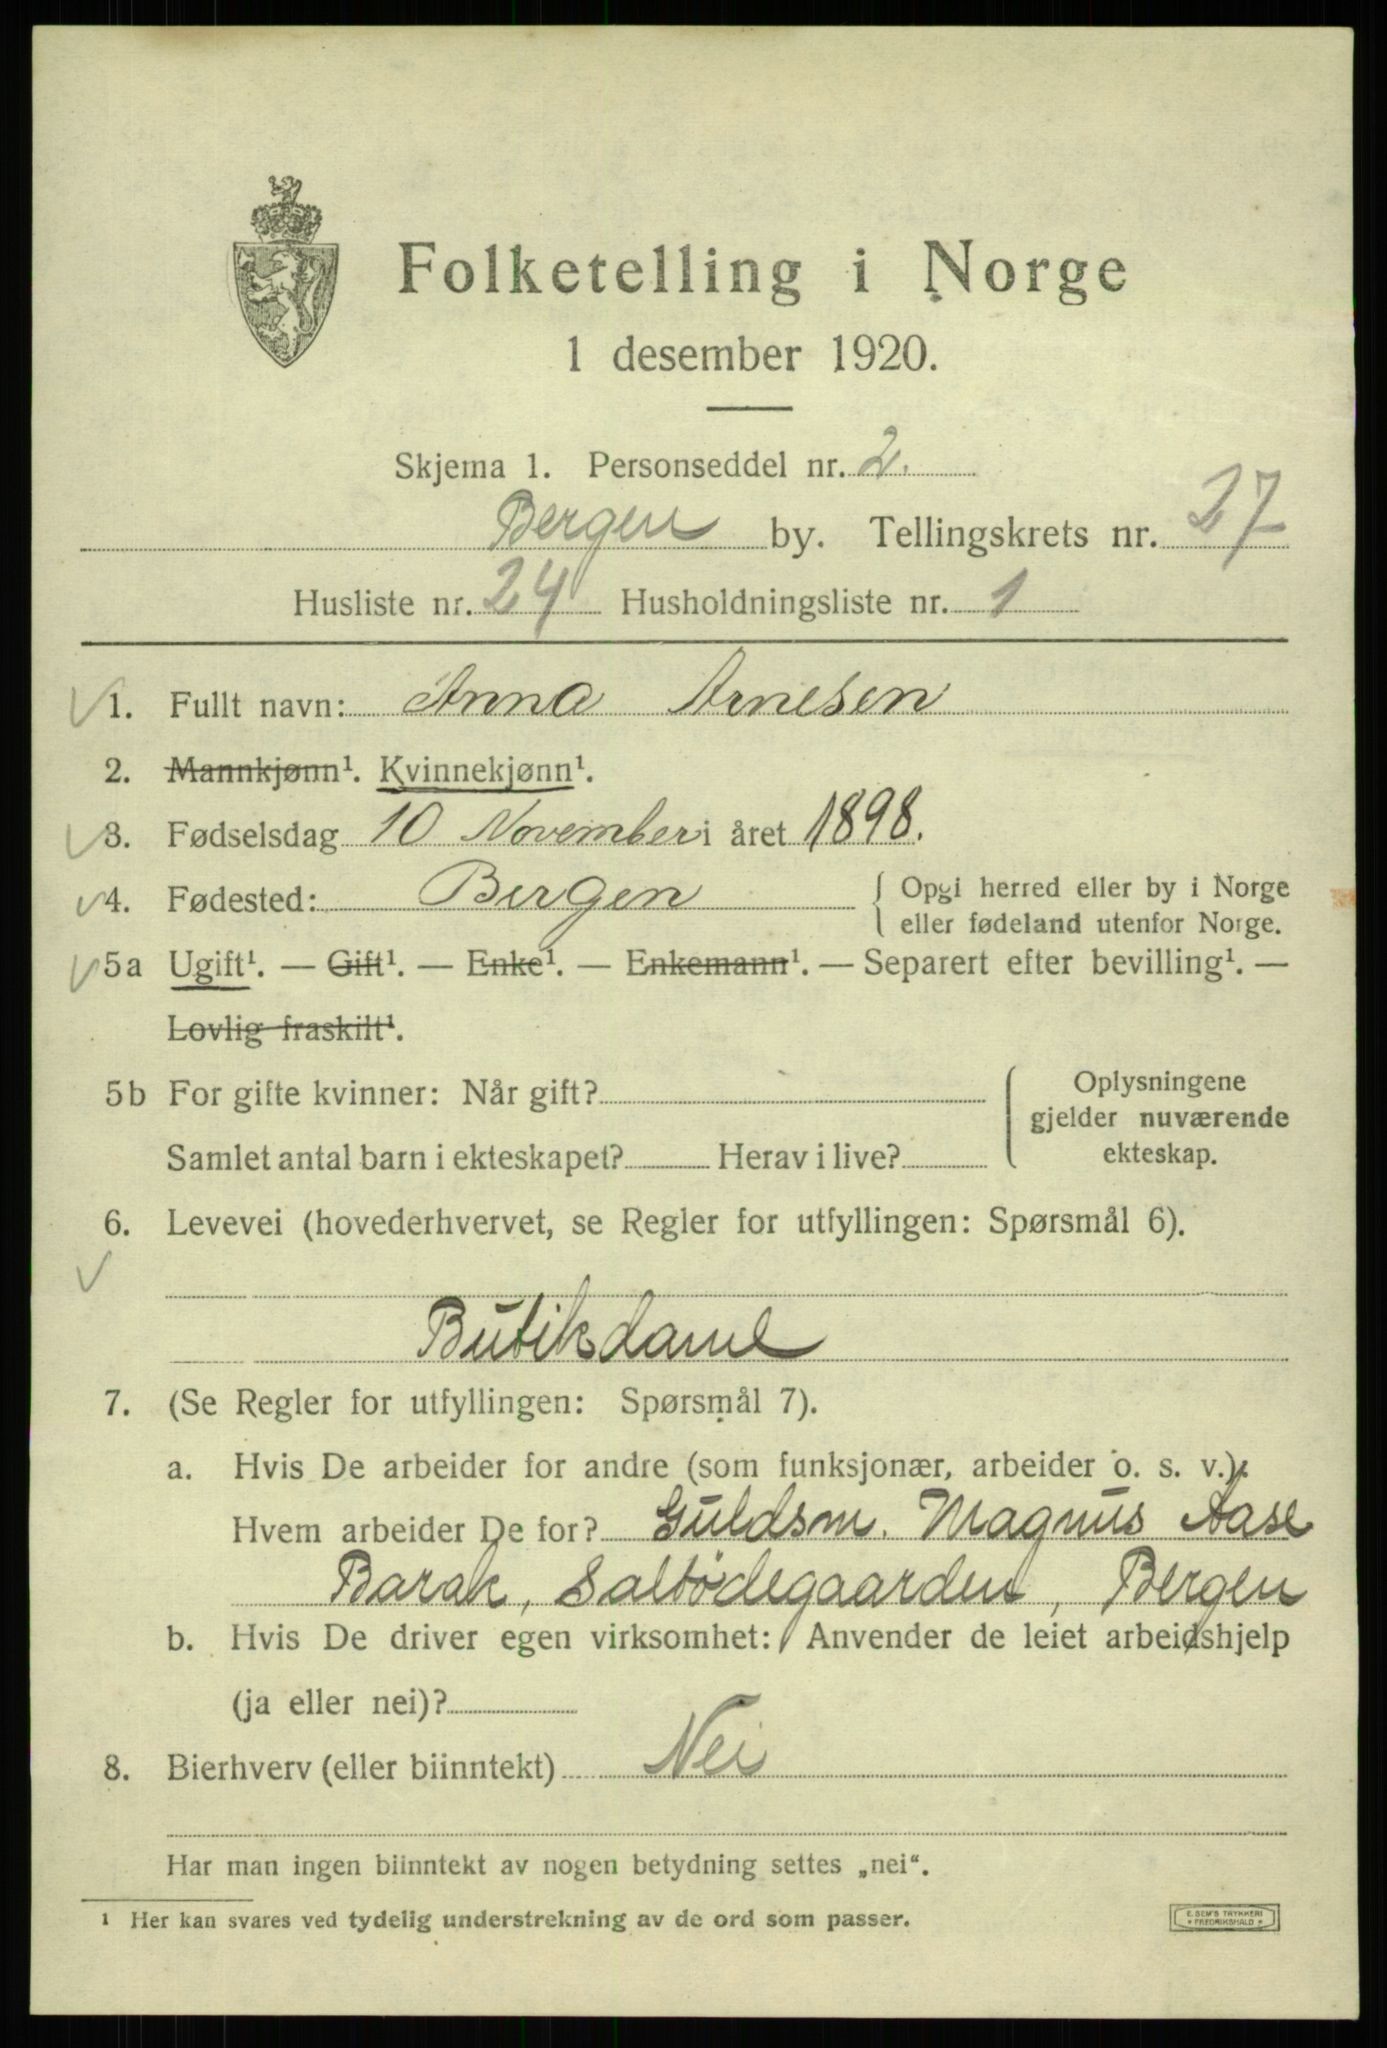 Folketelling i Norge
1 desember 1920.
Skjema 1. Personseddel nr. 2.
Bergen by. Tellingskrets nr. 27
Husliste nr. 24 Husholdningsliste nr. 1
1. Fullt navn: Anna Arnesen
2. Mannkjønn¹. Kvinnekjønn¹.
3. Fødselsdag 10 November i året 1898.
4. Fødested: Bergen { Opgi herred eller by i Norge
eller fødeland utenfor Norge.
5a Ugift¹. — Gift¹. — Enke¹. — Enkemann¹. — Separert efter bevilling¹. —
Lovlig fraskilt¹.
5b For gifte kvinner: Når gift? { Oplysningene
gjelder nuværende
Samlet antal barn i ekteskapet? Herav i live? ekteskap.
6. Levevei (hovederhvervet, se Regler for utfyllingen: Spørsmål 6).
Butikdame
7. (Se Regler for utfyllingen: Spørsmål 7).
a. Hvis De arbeider for andre (som funksjonær, arbeider o. s. v.):
Hvem arbeider De for? Guldsm. Magnus Aase
Barak, Saltødegaarden, Bergen
b. Hvis De driver egen virksomhet: Anvender de leiet arbeidshjelp
(ja eller nei)?
8. Bierhverv (eller biinntekt) Nei
Har man ingen biinntekt av nogen betydning settes „nei“.
¹ Her kan svares ved tydelig understrekning av de ord som passer.
E. SEM'S TRYKKERI
* FREDRIKSHALD *